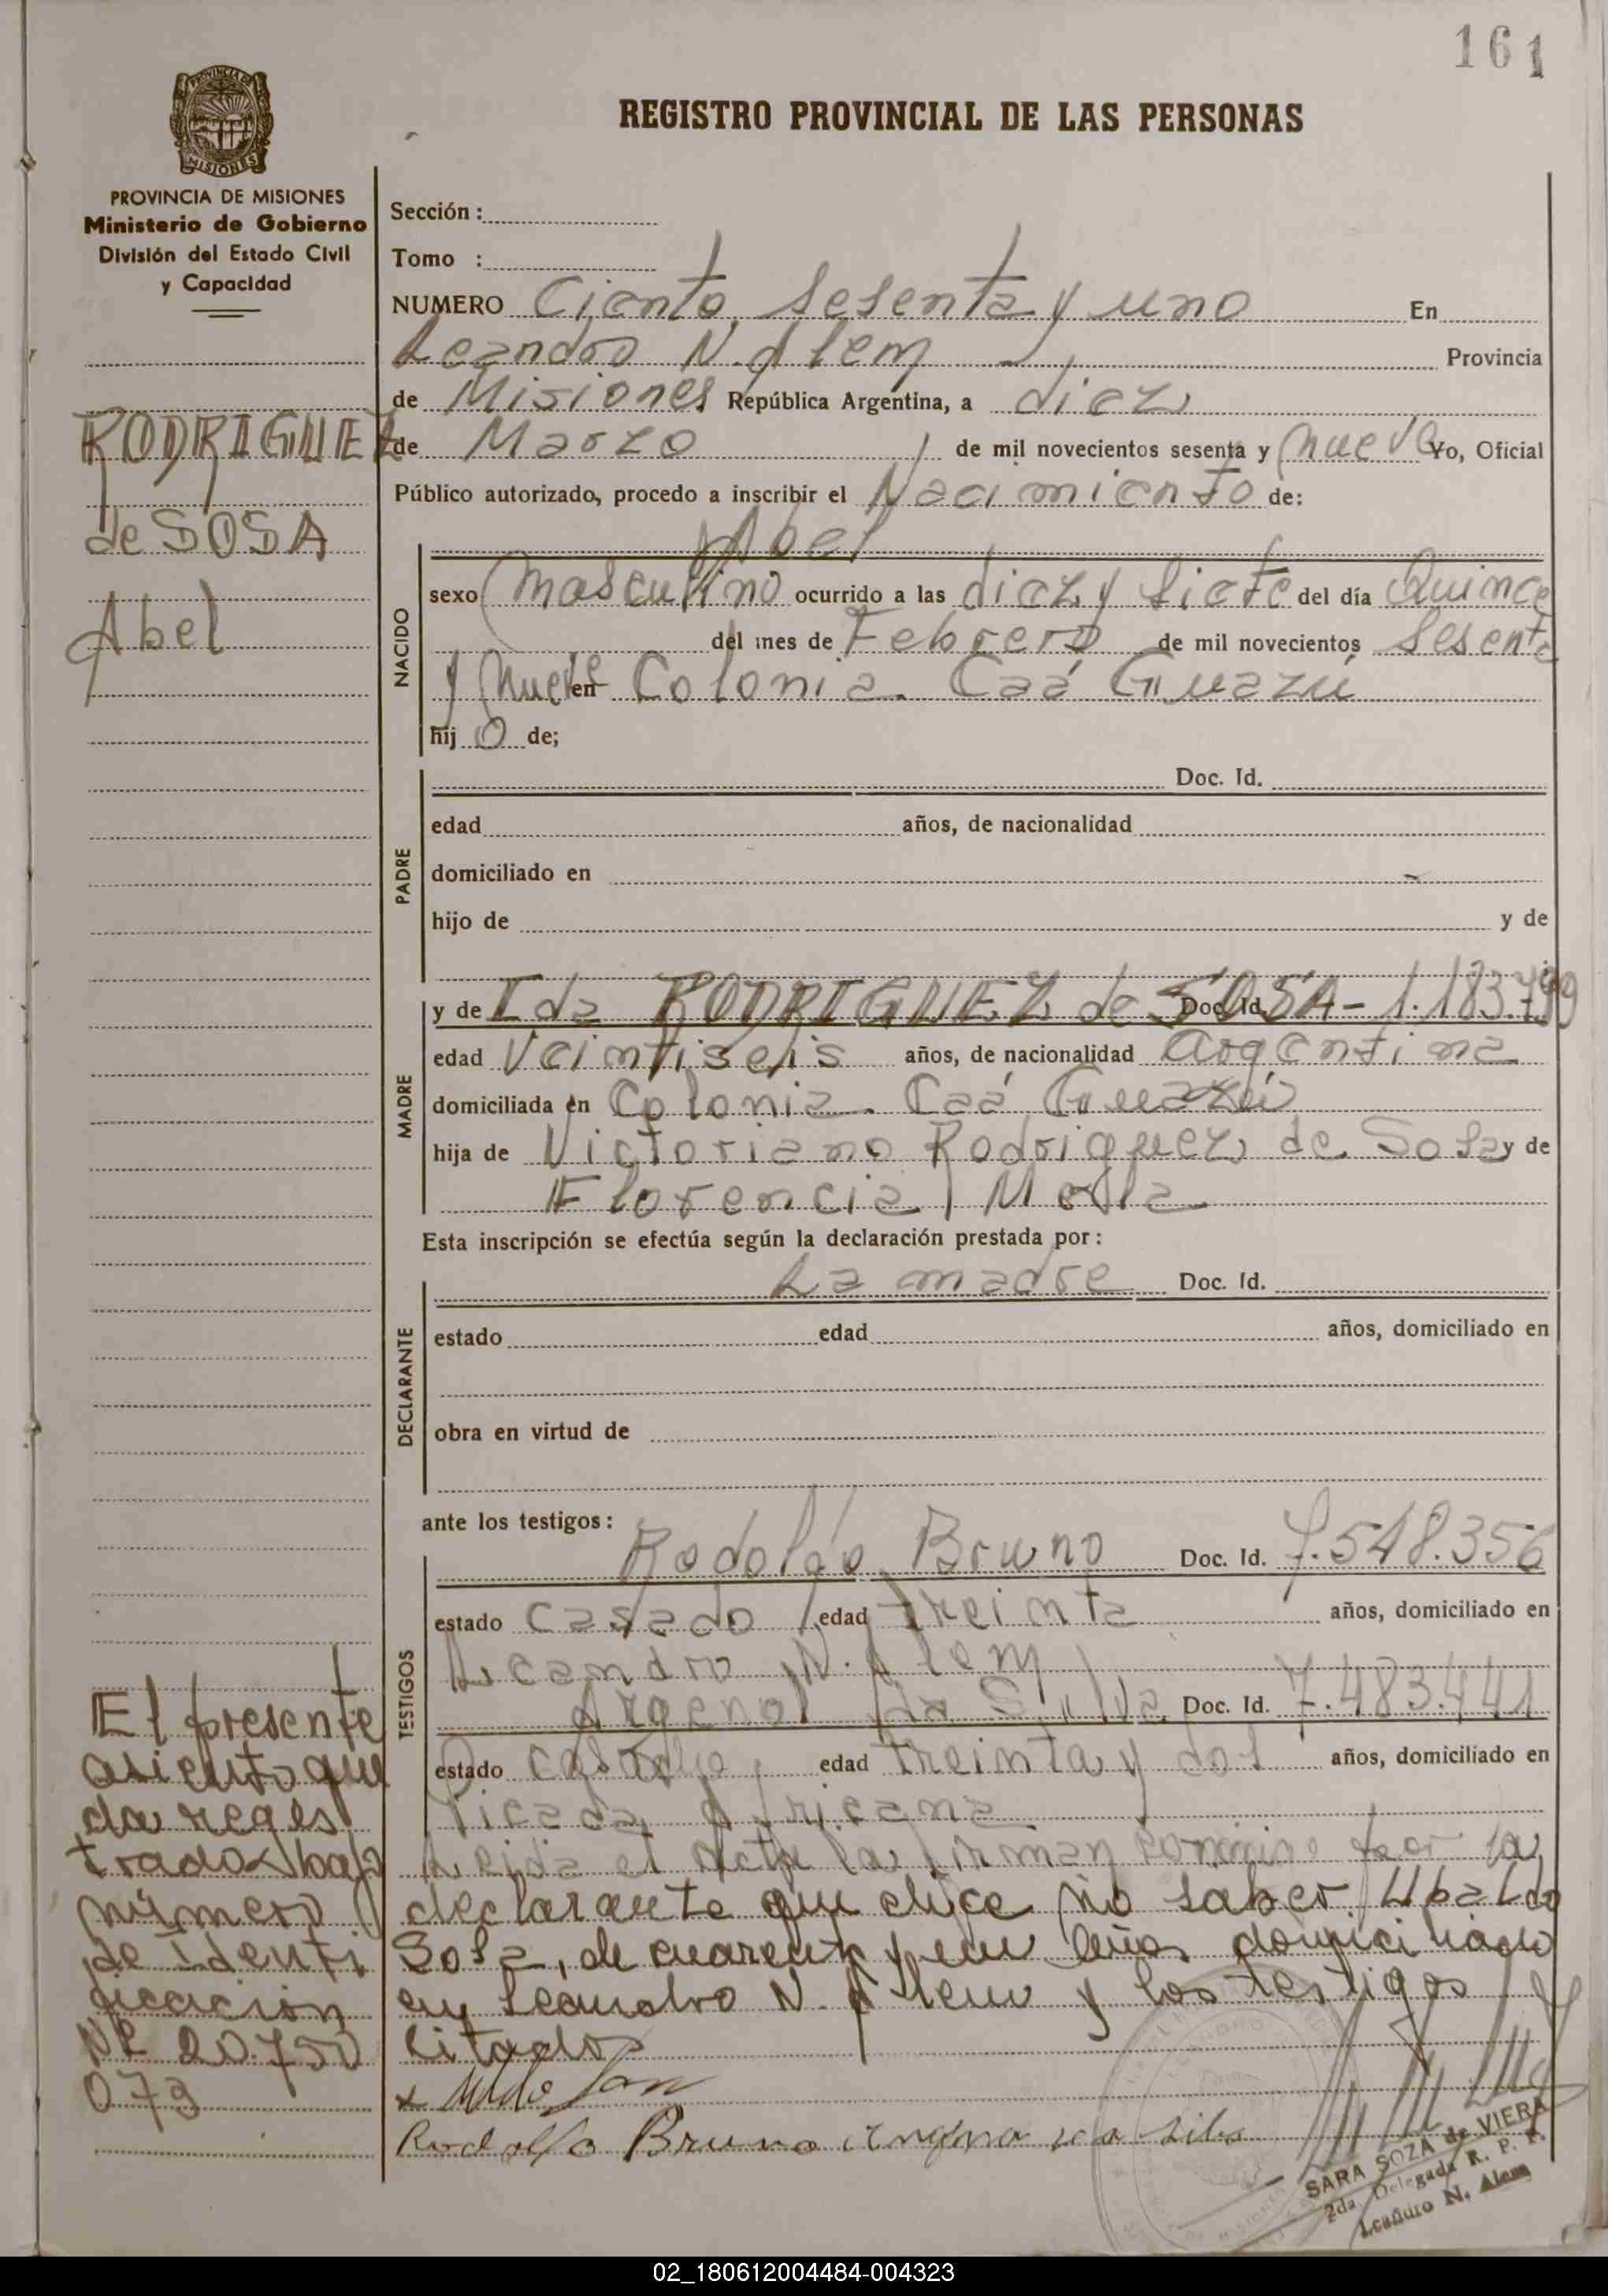 161
REGISTRO PROVINCIAL DE LAS PERSONAS
PROVINCIA DE MISIONES
MISIONES
PROVINCIA DE MISIONES
Ministerio de Gobierno
División del Estado Civil
y Capacidad
RODRIGUEZ
de SOSA
Abel
El presente
asiento que
da regis
trado bajo
número
de Identi
ficacion
Nº 20.750
073
Sección :
Tomo :
NUMERO Ciento sesenta y uno En
Leandro N. Alem Provincia
de Misiones República Argentina, a diez
de Marzo de mil novecientos sesenta y nueve Yo, Oficial
Público autorizado, procedo a inscribir el Nacimiento de:
Abel
NACIDO
sexo masculino ocurrido a las diez y siete del día Quince
del mes de Febrero de mil novecientos sesenta
y nueve en Colonia Caá Guazú
hij o de;
PADRE
Doc. Id.
edad años, de nacionalidad
domiciliado en
hijo de y de
MADRE
y de Ida RODRIGUEZ de SOSA - Doc. Id. 1.183.799
edad Veintiseis años, de nacionalidad argentina
domiciliada en Colonia Caá Guazú
hija de Victoriano Rodriguez de Sosa y de
Florencia
Esta inscripción se efectúa según la declaración prestada por:
DECLARANTE
La madre Doc. Id.
estado edad años, domiciliado en
obra en virtud de
ante los testigos:
TESTIGOS
Rodolfo Bruno Doc. Id. 7.548.356
estado casado edad treinta años, domiciliado en
Leandro N. Alem
Argenol da Silva Doc. Id. 7.483.441
estado casado edad treinta y dos años, domiciliado en
Picada Africana
Leida el Acta la firman conmigo por la
declarante que dice no saber Ubaldo
Sosa, de cuarenta y un años domiciliado
en Leandro N. Alem y los testigos
citados
Rodolfo Bruno
SARA SOZA de VIERA
2da. Delegada R. P. P.
Leandro N. Alem
02_180612004484-004323